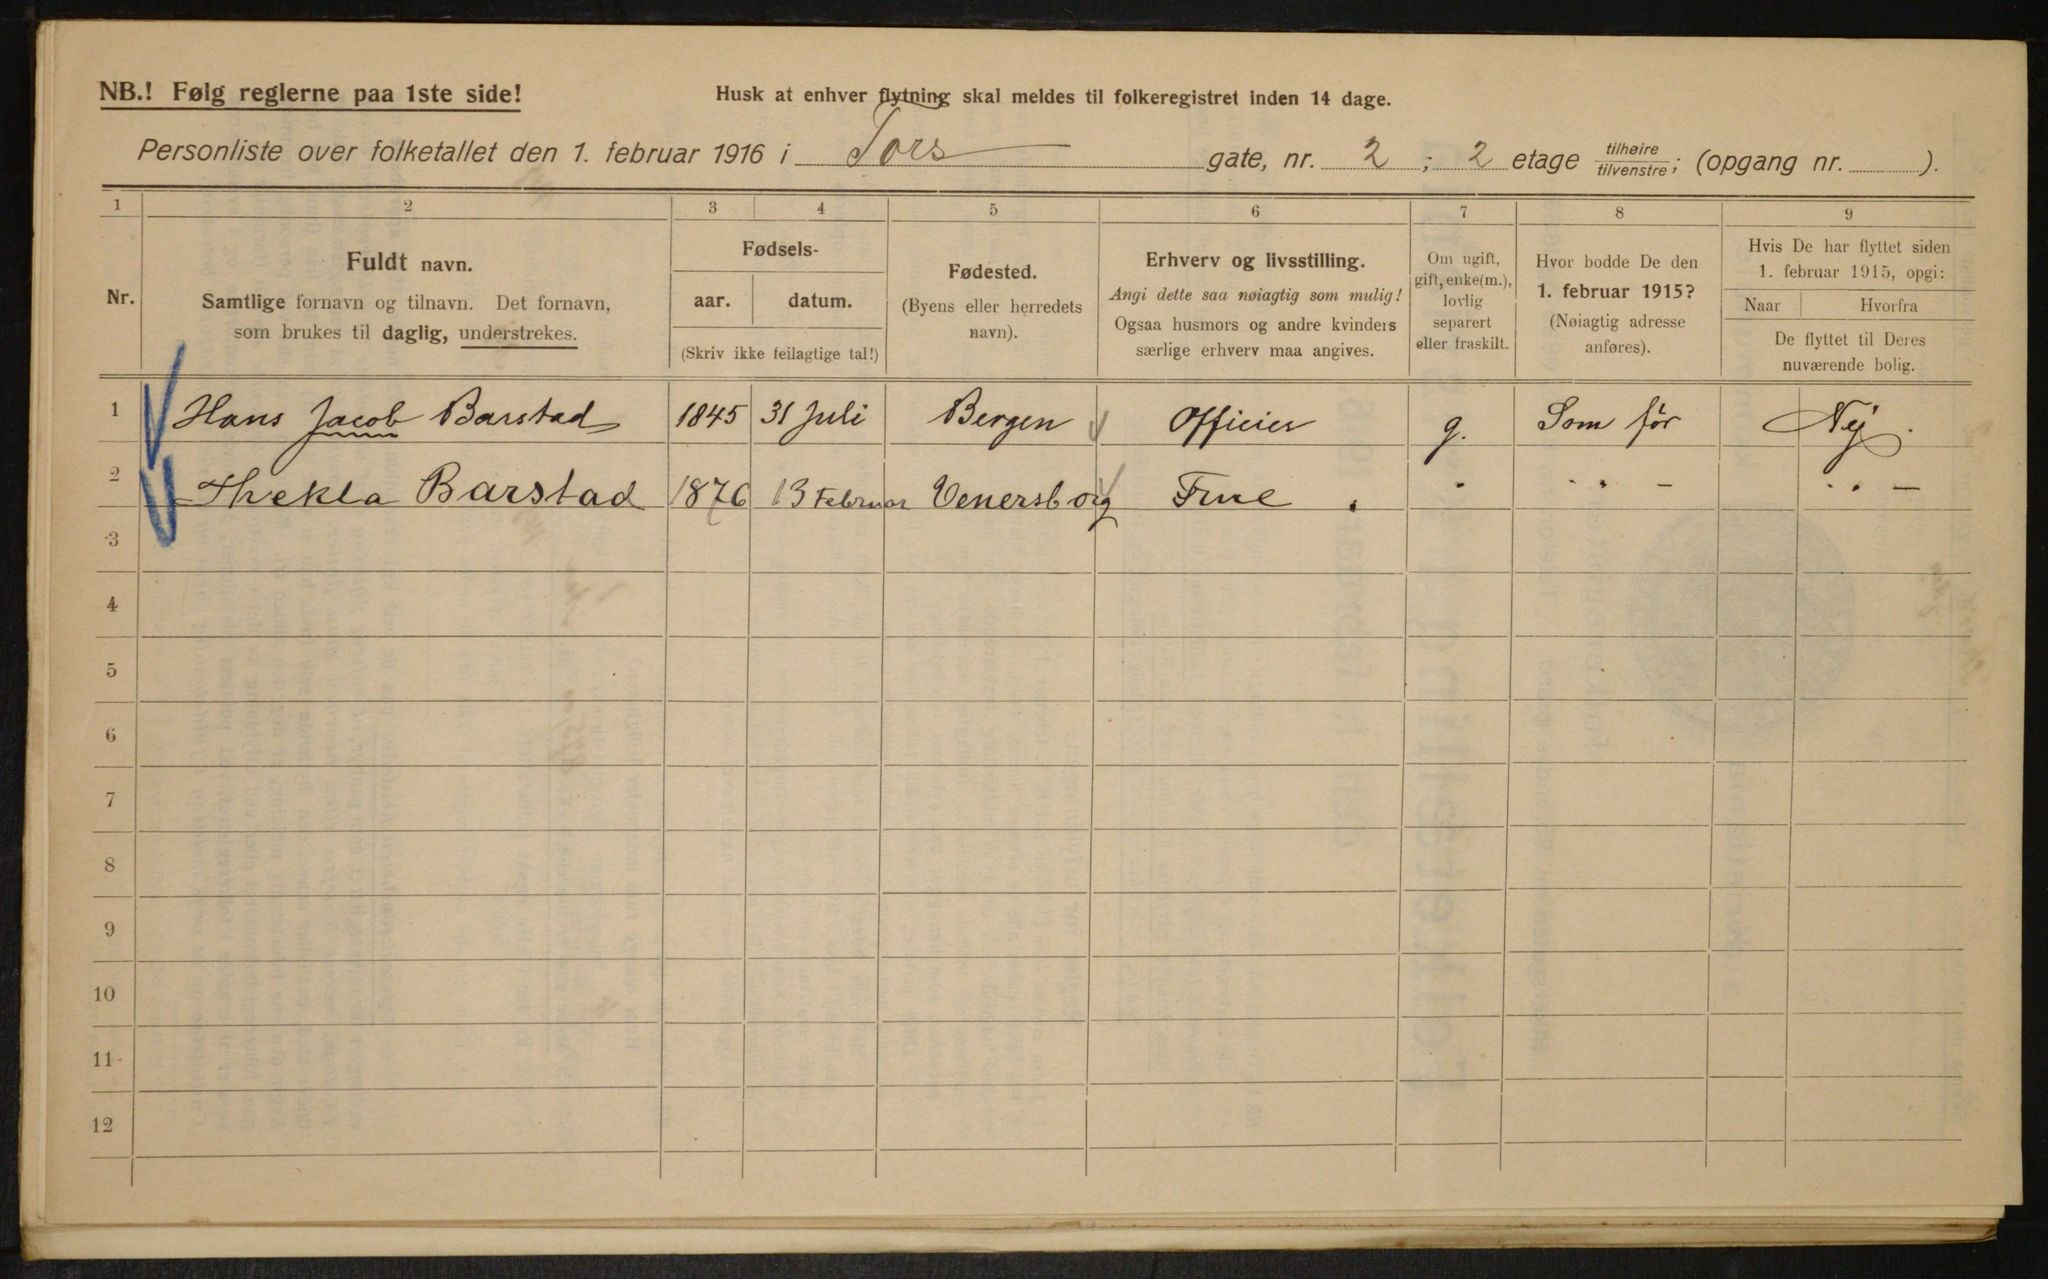 NB.! Følg reglerne paa 1ste side!
Husk at enhver flytning skal meldes til folkeregistret inden 14 dage.
Personliste over folketallet den 1. februar 1916 i Tors gate, nr. 2 ; 2 etage tilhøire/tilvenstre; (opgang nr. ).
1 2 3 4 5 6 7 8 9
Nr.
Fuldt navn.
Samtlige fornavn og tilnavn. Det fornavn,
som brukes til daglig, understrekes.
Fødsels-
aar. datum.
(Skriv ikke feilagtige tal!)
Fødested.
(Byens eller herredets
navn).
Erhverv og livsstilling.
Angi dette saa nøiagtig som mulig!
Ogsaa husmors og andre kvinders
særlige erhverv maa angives.
Om ugift,
gift, enke(m.),
lovlig
separert
eller fraskilt.
Hvor bodde De den
1. februar 1915?
(Nøiagtig adresse
anføres).
Hvis De har flyttet siden
1. februar 1915, opgi:
Naar Hvorfra
De flyttet til Deres
nuværende bolig.
1 Hans Jacob Barstad 1845 31 Juli Bergen Officier g. Som før Nej.
2 Thekla Barstad 1876 13 Februar Venersborg Frue. " " " – " " –
3
4
5
6
7
8
9
10
11
12